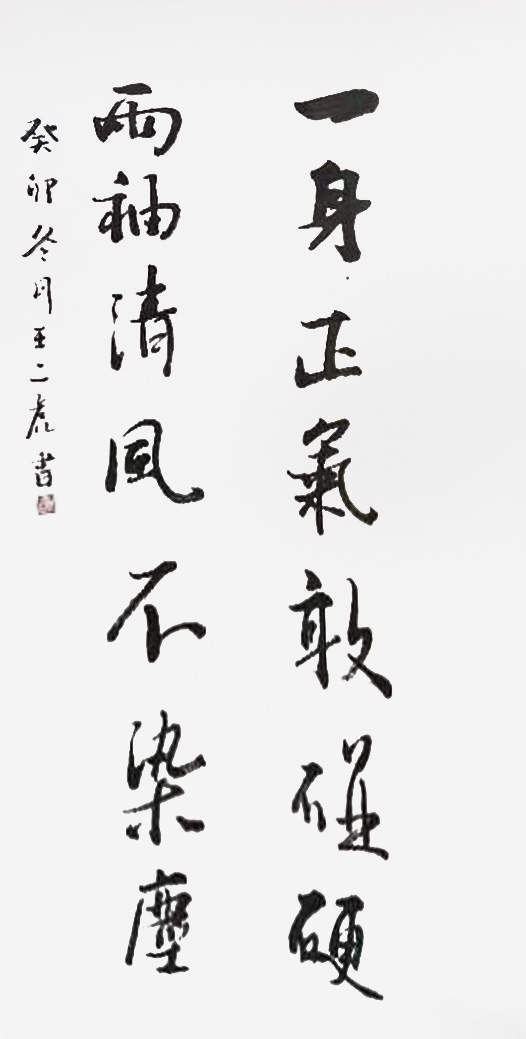 一身正氣敢碰硬
兩袖清風不染塵
癸卯冬月王二虎書